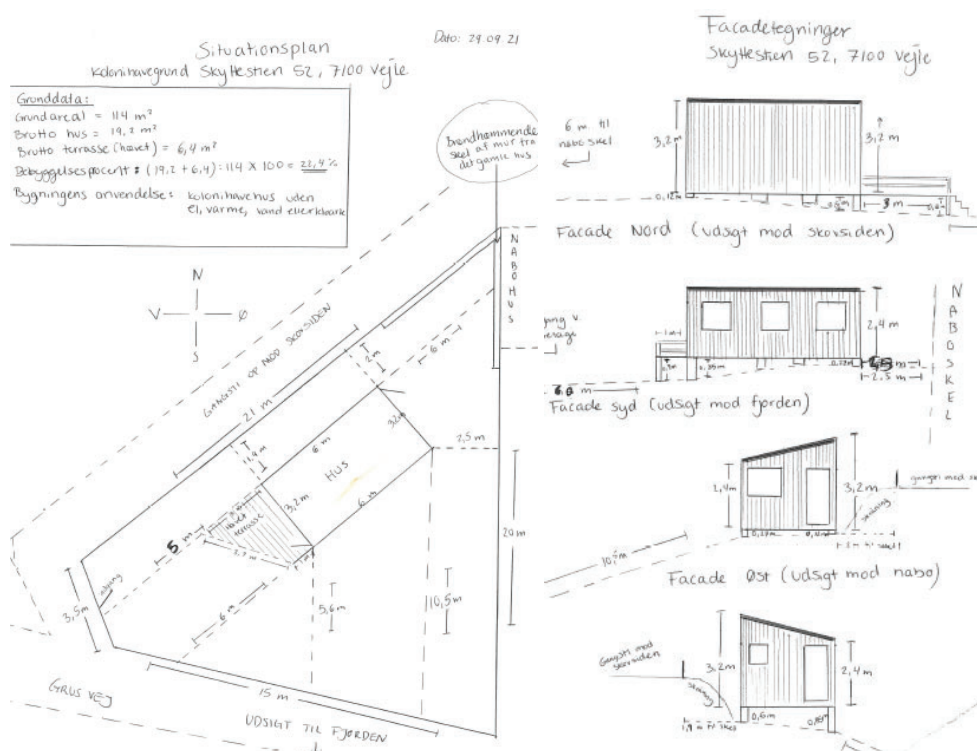 Situationsplan
Kolonihavegrund Skyttestien 52, 7100 Vejle
Dato: 29.09.21
Grunddata:
Grundareal = 114 m²
Brutto hus = 19,2 m²
Brutto terrasse (hævet) = 6,4 m²
Bebyggelsesprocent: (19,2 + 6,4) : 114 x 100 = 22,4 %
Bygningens anvendelse: kolonihavehus uden
el, varme, vand eller kloark
Brandhæmmende
skel af mur fra
det gamle hus
N
V
Ø
S
GANGSTI OP MOD SKOVSIDEN
NABOHUS
21 m
2 m
6 m
6 m
3,2m
HUS
2,5 m
1,9 m
3,2m
6 m
hævet
terrasse
5 m
2,7 m
20 m
3,5m
6 m
5,6m
10,5m
15 m
GRUS VEJ
UDSIGT TIL FJORDEN
Facadetegninger
Skyttestien 52, 7100 Vejle
6 m til
nabo skel
3,2m
3,2m
0,12m
3 m
Facade Nord (udsigt mod skovsiden)
1m
2,4m
2,5 m
NABOSKEL
Facade syd (udsigt mod fjorden)
2,4m
3,2m
skråning
10,5m
Facade Øst (udsigt mod nabo)
Gangsti mod
skovsiden
skråning
3,2m
2,4m
0,6m
1,9 m til skel